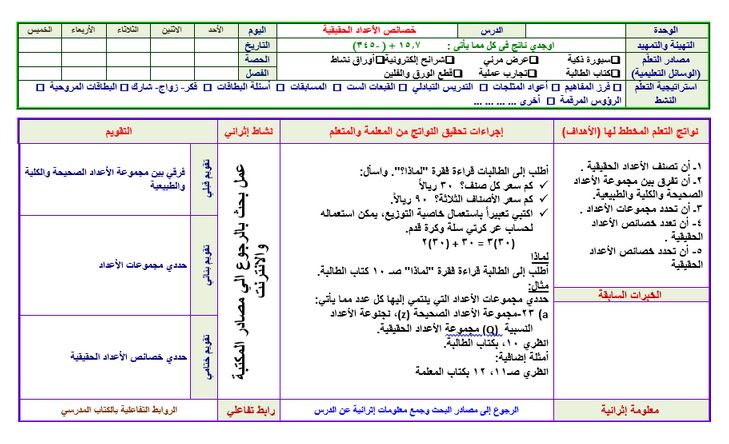 الوحدة
الدرس
خصائص الأعداد الحقيقية
اليوم
الأحد
الاثنين
الثلاثاء
الأربعاء
الخميس
التهيئة والتمهيد
اوجدي ناتج فى كل مما يأتى : ١٥,٧ + ( -٣٤٥)
التاريخ
مصادر التعلم
(الوسائل التعليمية)
□سبورة ذكية □عرض مرئي □شرائح إلكترونية□أوراق نشاط
□كتاب الطالبة □تجارب عملية □قطع الورق والفلين
الحصة
الفصل
استراتيجية التعلم
النشط
□ فرز المفاهيم □ أعواد المثلجات □ التدريس التبادلي □ القبعات الست □ المسابقات □ أسئلة البطاقات □ فكر- زواج- شارك □ البطاقات المروحية □
الرؤوس المرقمة □ أخرى ... ... ... ...
نواتج التعلم المخطط لها (الأهداف)
إجراءات تحقيق النواتج من المعلمة والمتعلم
نشاط إثرائي
التقويم
١- أن تصنف الأعداد الحقيقية .
٢- أن تفرق بين مجموعة الأعداد
الصحيحة والكلية والطبيعية.
٣- أن تحدد مجموعات الأعداد .
٤- أن تعدد خصائص الأعداد
الحقيقية .
٥- أن تحدد خصائص الأعداد
الحقيقية
الخبرات السابقة
أطلب إلى الطالبات قراءة فقرة "لماذا؟". واسأل:
✓ كم سعر كل صنف؟ ٣٠ ريالاً
✓ كم سعر الأصناف الثلاثة؟ ٩٠ ريالاً.
✓ اكتبي تعبيراً باستعمال خاصية التوزيع، يمكن استعماله
لحساب عر كرتي سلة وكرة قدم.
٣(٣٠) = ٣٠ + ٢(٣٠)
لماذا
أطلب إلى الطالبة قراءة فقرة "لماذا" صـ ١٠ كتاب الطالبة.
مثال:
حددي مجموعات الأعداد التي ينتمي إليها كل عدد مما يأتي:
a) ٢٣-مجموعة الأعداد الصحيحة (z)، نجنوعة الأعداد
النسبية (Q) مجموعة الأعداد الحقيقية.
انظري ١٠، بكتاب الطالبة.
أمثلة إضافية:
انظري صـ١١، ١٢ بكتاب المعلمة
عمل بحث بالرجوع الي مصادر المكتبة
والانترنت
تقويم قبلي
فرقي بين مجموعة الأعداد الصحيحة والكلية
والطبيعية
تقويم بنائي
حددي مجموعات الأعداد
تقويم ختامي
حددي خصائص الأعداد الحقيقية
معلومة إثرائية
الرجوع إلى مصادر البحث وجمع معلومات إثرائية عن الدرس
رابط تفاعلي
الروابط التفاعلية بالكتاب المدرسي